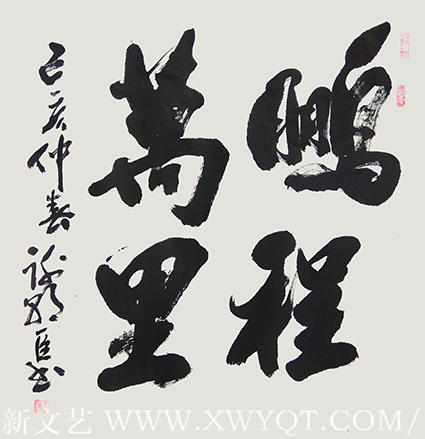 鵬程
萬里
己亥仲春
新文艺 WWW.XWYQT.COM/